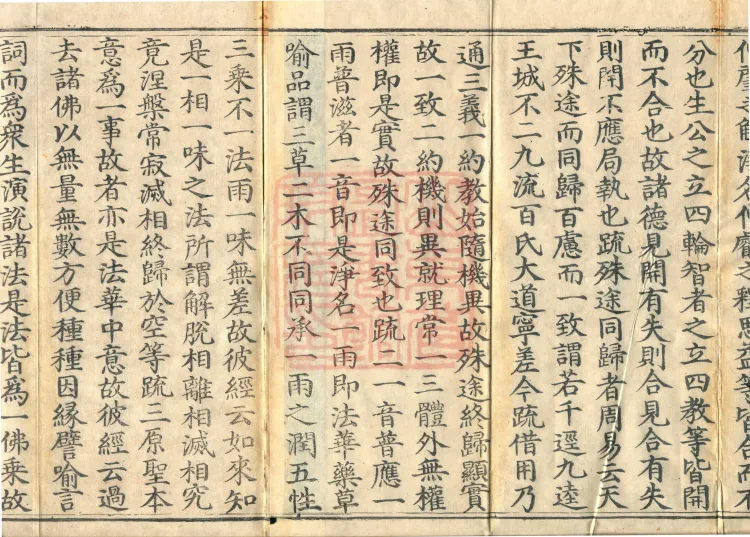 分也生公之立四輪智者之立四教等皆開
而不合也故諸德見開有失則合見合有失
則開不應局執也疏殊途同歸者周易云天
下殊途而同歸百慮而一致謂若千逕九逵
王城不二九流百氏大道寧差今疏借用乃
通三義一約教始隨機異故殊途終歸顯實
故一致二約機則異就理常一三體外無權
權即是實故殊途同致也疏二一音普應一
雨普滋者一音即是淨名一雨即法華藥草
喻品謂三草二木不同同承一雨之潤五性
三乘不一法雨一味無差故彼經云如來知
是一相一味之法所謂解脫相離相滅相究
竟涅槃常寂滅相終歸於空等疏三原聖本
意為一事故者亦是法華中意故彼經云過
去諸佛以無量無數方便種種因緣譬喻言
詞而為眾生演說諸法是法皆為一佛乘故